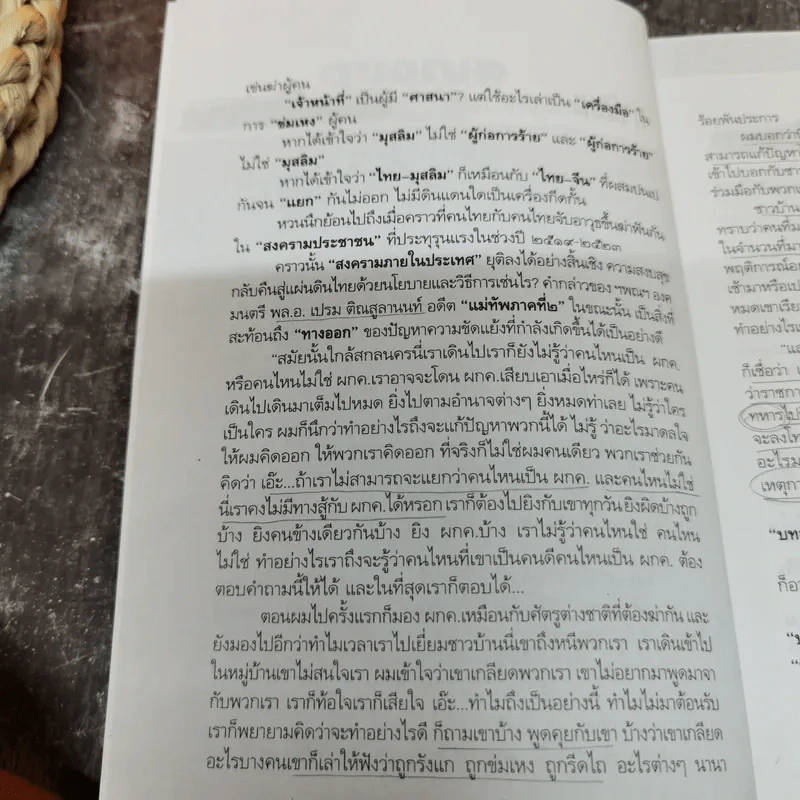 เช่นฆ่าผู้คน
"เจ้าหน้าที่" เป็นผู้มี "ศาสนา"? แต่ใช้อะไรเล่าเป็น "เครื่องมือ" ใน
การ "ข่มเหง" ผู้คน
หากได้เข้าใจว่า "มุสลิม" ไม่ใช่ "ผู้ก่อการร้าย" และ "ผู้ก่อการร้าย"
ไม่ใช่ "มุสลิม"
หากได้เข้าใจว่า "ไทย–มุสลิม" ก็เหมือนกับ "ไทย–จีน" ที่ผสมปนเป
กันจน "แยก" กันไม่ออก ไม่มีดินแดนใดเป็นเครื่องกีดกั้น
หวนนึกย้อนไปถึงเมื่อคราวที่คนไทยกับคนไทยจับอาวุธขึ้นฆ่าฟันกัน
ใน "สงครามประชาชน" ที่ประทุรุนแรงในช่วงปี ๒๕๑๙-๒๕๒๓
คราวนั้น "สงครามภายในประเทศ" ยุติลงได้อย่างสิ้นเชิง ความสงบสุข
กลับคืนสู่แผ่นดินไทยด้วยนโยบายและวิธีการเช่นไร? คำกล่าวของ ฯพณฯ องค
มนตรี พล.อ. เปรม ติณสูลานนท์ อดีต "แม่ทัพภาคที่๒" ในขณะนั้น เป็นสิ่งที่
สะท้อนถึง "ทางออก" ของปัญหาความขัดแย้งที่กำลังเกิดขึ้นได้เป็นอย่างดี
"สมัยนั้นใกล้สกลนครนี่เราเดินไปเราก็ยังไม่รู้ว่าคนไหนเป็น ผกค.
หรือคนไหนไม่ใช่ ผกค.เราอาจจะโดน ผกค.เสียบเอาเมื่อไหร่ก็ได้ เพราะคน
เดินไปเดินมาเต็มไปหมด ยิ่งไปตามอำนาจต่างๆ ยิ่งหมดท่าเลย ไม่รู้ว่าใคร
เป็นใคร ผมก็นึกว่าทำอย่างไรถึงจะแก้ปัญหาพวกนี้ได้ ไม่รู้ ว่าอะไรมาดลใจ
ให้ผมคิดออก ให้พวกเราคิดออก ที่จริงก็ไม่ใช่ผมคนเดียว พวกเราช่วยกัน
คิดว่า เอ๊ะ...ถ้าเราไม่สามารถจะแยกว่าคนไหนเป็น ผกค. และคนไหนไม่ใช่
นี่เราคงไม่มีทางสู้กับ ผกค.ได้หรอก เราก็ต้องไปยิงกับเขาทุกวัน ยิงผิดบ้างถูก
บ้าง ยิงคนข้างเดียวกันบ้าง ยิง ผกค.บ้าง เราไม่รู้ว่าคนไหนใช่ คนไหน
ไม่ใช่ ทำอย่างไรเราถึงจะรู้ว่าคนไหนที่เขาเป็นคนดีคนไหนเป็น ผกค. ต้อง
ตอบคำถามนี้ให้ได้ และในที่สุดเราก็ตอบได้...
ตอนผมไปครั้งแรกก็มอง ผกค.เหมือนกับศัตรูต่างชาติที่ต้องฆ่ากัน และ
ยังมองไปอีกว่าทำไมเวลาเราไปเยี่ยมชาวบ้านนี่เขาถึงหนีพวกเรา เราเดินเข้าไป
ในหมู่บ้านเขาไม่สนใจเรา ผมเข้าใจว่าเขาเกลียดพวกเรา เขาไม่อยากมาพูดมาจา
กับพวกเรา เราก็ท้อใจเราก็เสียใจ เอ๊ะ...ทำไมถึงเป็นอย่างนี้ ทำไมไม่มาต้อนรับ
เราก็พยายามคิดว่าจะทำอย่างไรดี ก็ถามเขาบ้าง พูดคุยกับเขา บ้างว่าเขาเกลียด
อะไรบางคนเขาก็เล่าให้ฟังว่าถูกรังแก ถูกข่มเหง ถูกรีดไถ อะไรต่างๆ นานา
ร้อยพันประการ
ผมบอกว่าถ้
สามารถแก้ปัญหา
เข้าไปบอกกับชา
ร่วมมือกับพวกเ
ชาวบ้าน
ทราบว่าคนที่ม
ในจำนวนที่มา
พฤติการณ์อ
เช้ามาหรือเป
หมดเขาเรีย
ทำอย่างไรเ
"แล
ก็เชื่อว่า เ
ว่าราชกา
ทหารไป
จะลงโท
อะไรมา
เหตุกา
"บท
ก็อา